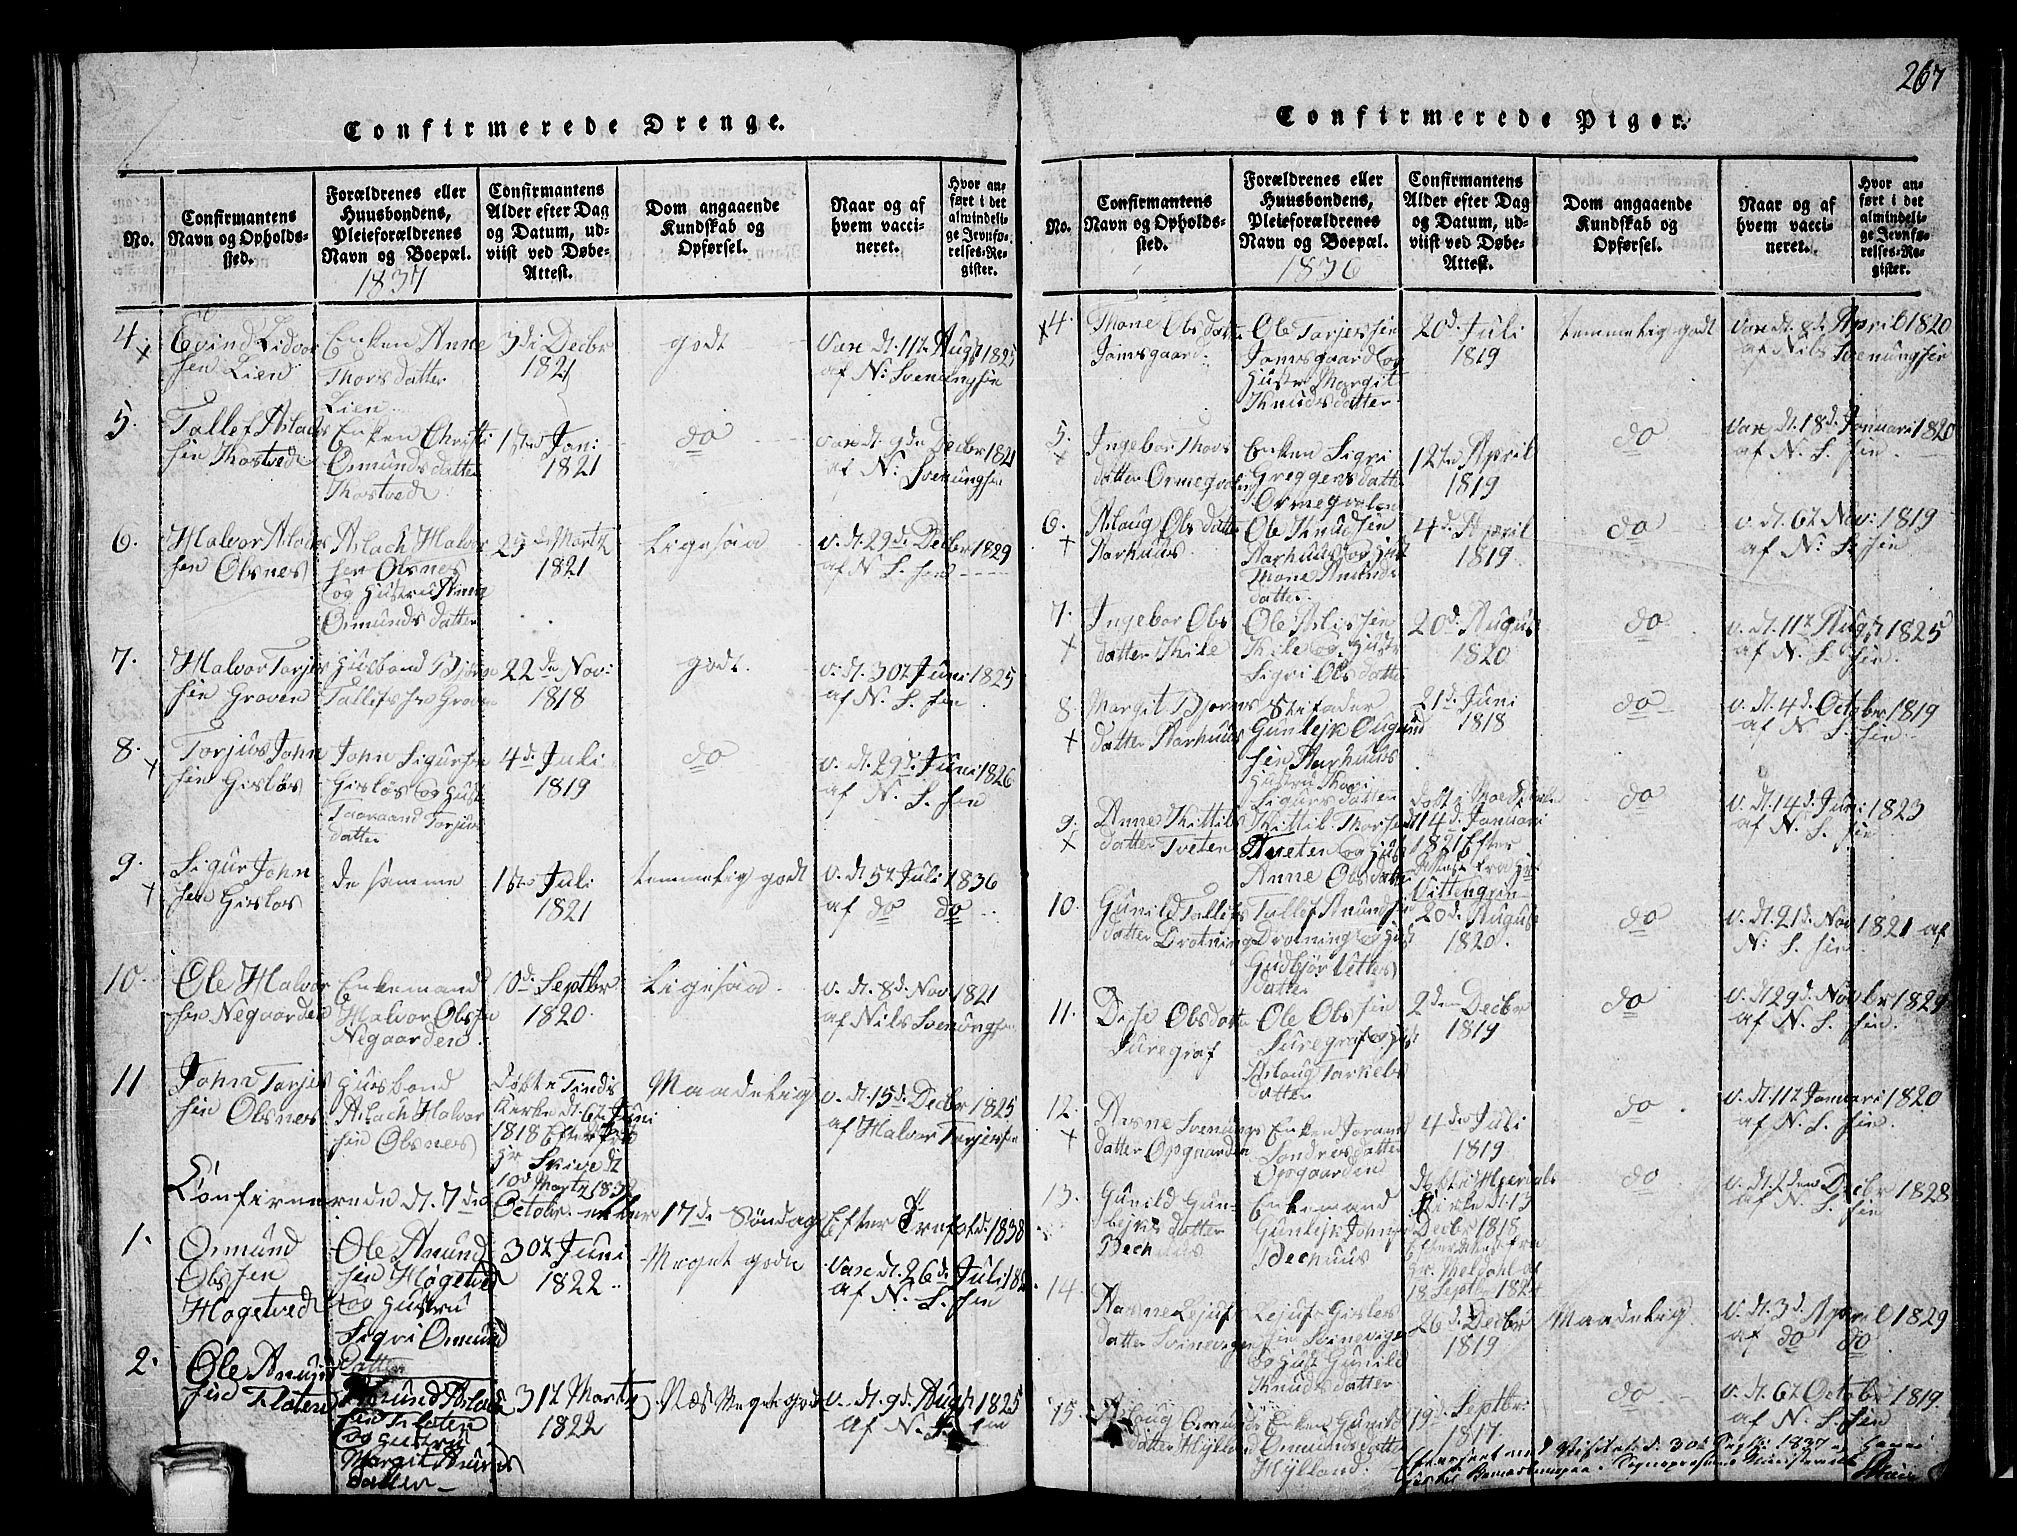 267
Confirmerede Drenge.
No.
Confirmantens
Navn og Opholds-
sted.
Forældrenes eller
Huusbondens,
Pleieforældrenes
Navn og Boepæl.
1837
Confirmantens
Alder efter Dag
og Datum, ud-
viist ved Døbe-
Attest.
Dom angaaende
Kundskab og
Opførsel.
Naar og af
hvem vacci-
neret.
Hvor an-
ført i det
almindeli-
ge Jevnfø-
relses-Re-
gister.
4.
sen Lien
Enken Anne
Thors datter
Lien
3di Decbr
1821
godt
Vax dt. 11t Augst 1825
af N: Svenungsen
5.
Tallef Aslachs
sen Thortvedt
Enken Christi
Ormunds datter
Thortvedt
1ste Jani
1821
do
Vax dt. 9de Decbr 1821
af N: Svenungsen
6.
Halvor Aslachs
sen Olsnes
Aslach Halvor
sen Olsnes
og Hustru Anne
Ormunds datter
25de Martz
1821
Ligesaa
v. dt. 29de Decbr 1829
af N. S. sen
7.
Halvor Torjes
sen Groven
Husbond Bjørn
Tallefs sen Groven
22de Nov:
1818
godt
v. dt. 30t Juni 1825
af N. S. sen
8.
Torjus John
sen Gisløs
John Sigurs
Gisløs og Hust
Taaraand Torjus
datter
4de Juli
1819
do
v. dt. 29de Juni 1826
af N. S. sen
9.
Sigur John
sen Gisløs
de samme
1ste Juli
1821
temmelig godt
v. dt. 5t Juli 1836
af do do
10.
Ole Halvor
sen Negaarden
Enkemand
Halvor Olssen
Negaarden
10de Septbr
1820
Ligesaa
v. dt. 8de Nov 1821
af Nils Svenungsen
11
John Torjes
sen Olsnes
Husbond
Aslach Halvor
sen Olsnes
Døbt i Tinds
Kirke dt. 6t Juni
1818 Efter
Hr Skive dt
10de Martz
Maadelig
v. dt. 15de Decbr 1825
af Halvor Torjessen
Confirmerede dt. 7de Octobr. 17de Søndag Efter Trefold: 1838
1.
Ormund
Olssen
Høgetvedt
Ole Anund
sen Høgetvedt
og Hustru
Sigri Ormund
datter
30t Juni
1822
Meget godt
Vax dt. 26de Juli
af N. S. sen
2.
Ole Anund
sen Floten
Anund Aslach
sen Floten
og Hustru
Margit Anunds
datter
31t Martz
1822
Næs Meget godt
v. dt. 9de Augst 1825
af N. S. sen
Confirmerede Piger.
No.
Confirmantens
Navn og Opholds-
sted.
Forældrenes eller
Huusbondens,
Pleieforældrenes
Navn og Boepæl.
1836
Confirmantens
Alder efter Dag
og Datum, ud-
viist ved Døbe-
Attest.
Dom angaaende
Kundskab og
Opførsel.
Naar og af
hvem vacci-
neret.
Hvor an-
ført i det
almindeli-
ge Jevnfø-
relses-Re-
gister.
4.
Thone Olsdatter
Jamsgaard
Ole Torjessen
Jamsgaard og
Hustr Margit
Knudsdatter
20de Juli
1819
temmelig godt
Vax dt. 8de April 1820
af Nils Svenungsen
5.
Ingebor Thors
datter Ormegvalen
Enken Sigri
Greggersdatter
Ormegvalen
12te April
1819
do
Vax dt. 18de Januari 1820
af N. S. sen
6.
Aslaug Olsdatter
Aarhuus
Ole Knudsen
Aarhuus og Hust
Thone Anunds
datter
4de April
1819
do
v. dt. 6t Nov: 1819
af N: S. sen
7.
Ingebor Ols
datter Kile
Ole Aslissen
Kile og Hustr
Sigri Olsdatter
20de August
1820
do
v. dt. 11t Augst 1825
af N. S. sen
8
Margit Bjørns
datter Aarhuus
Stiffader
Gunlejk Ougund
sen Aarhuus
Hustru Thori
Sigursdatter
21de Juni
1818
do
v. dt. 4de Octobr 1819
af N. S. sen
9.
Anne Kittils
datter Tveten
Kittil Thorsen
Tveten og Hust
Anne Olsdatter
14de Januari
1821 Efter
Vittengrin
do
v. dt. 14de Juni 1823
af N. S. sen
10.
Gunild Tallefs
datter Drotning
Tallef Anundsen
Drotning og Hust
Gudbjør
datter
20de August
1820
do
v. dt. 21de Nov 1821 af
N: S. sen
11.
Olsdatter
Suregraf
Ole Olssen
Suregraf og Hust
Aslaug Tarkels
datter
2den Decbr
1819
do
v. dt 29de Novbr 1829
af N. S. sen.
12.
Aasne Svenungs
datter Opgaarden
Enken Joran
Sondresdatter
Opgaarden
4de Juli
1819
do
v. dt. 11t Januari 1820
af N. S. sen.
13.
Gunild Gun-
lejks datter
Bechuus
Enkemand
Gunlejk Johns
Bechuus
Døbt i
Kirke dt. 13
Decbr 1818
18 Septbr
do
v. dt. 2den Decbr 1828
af N. S. sen
14.
Aasne Lejufs
datter Svinevigen
Lejuf Gisles
sen Svinevigen
og Hust Gunild
Knudsdatter
26de Decbr
1819
Maadelig
v. dt. 3de April 1829
af do do
15.
Aslaug Ormunds
datter Hylland
Enken Gunild
Ormundsdatter
Hylland.
19de Septbr
1817
do
v. dt. 6t Octobr 1819
af N. S. sen
Efterseet ved Visitats d. 30t 1837